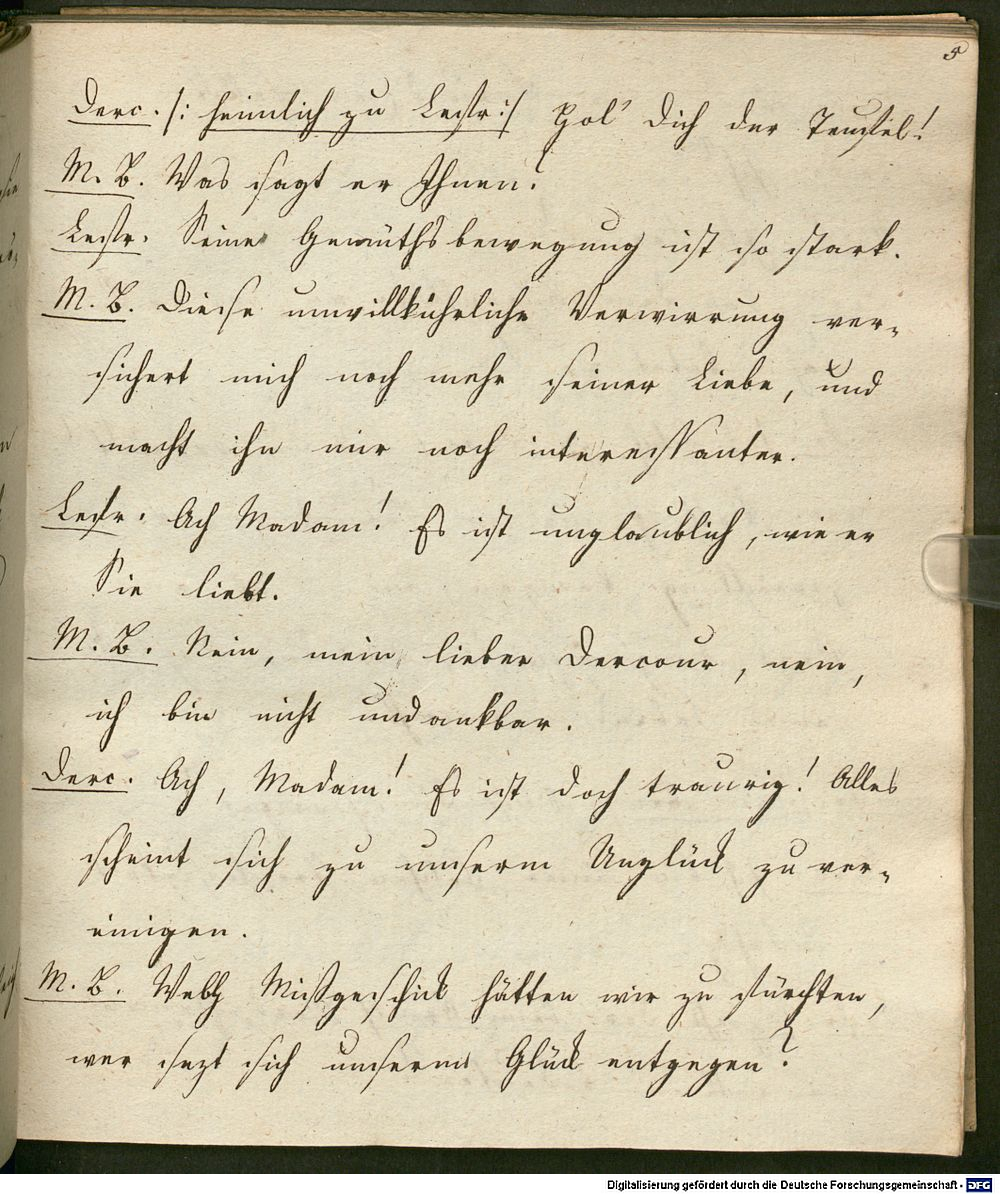 5
Derc. /: heimlich zu Lestr :/ Hol' dich der Teufel!
M. B. Was sagt er Ihnen?
Lestr. Seine Gemüthsbewegung ist so stark.
M. B. Diese unwillkührliche Verwirrung ver-
sichert mich noch mehr seiner Liebe, und
macht ihn mir noch interessanter.
Lestr. Ach Madam! Es ist unglaublich, wie er
Sie liebt.
M. B. Nein, mein lieber Dercour, nein,
ich bin nicht undankbar.
Derc. Ach, Madam! Es ist doch traurig! Alles
scheint sich zu unserm Unglück zu ver-
einigen.
M. B. Welch Mißgeschick hätten wir zu fürchten,
wer sezt sich unserm Glück entgegen?
Digitalisierung gefördert durch die Deutsche Forschungsgemeinschaft - DFG